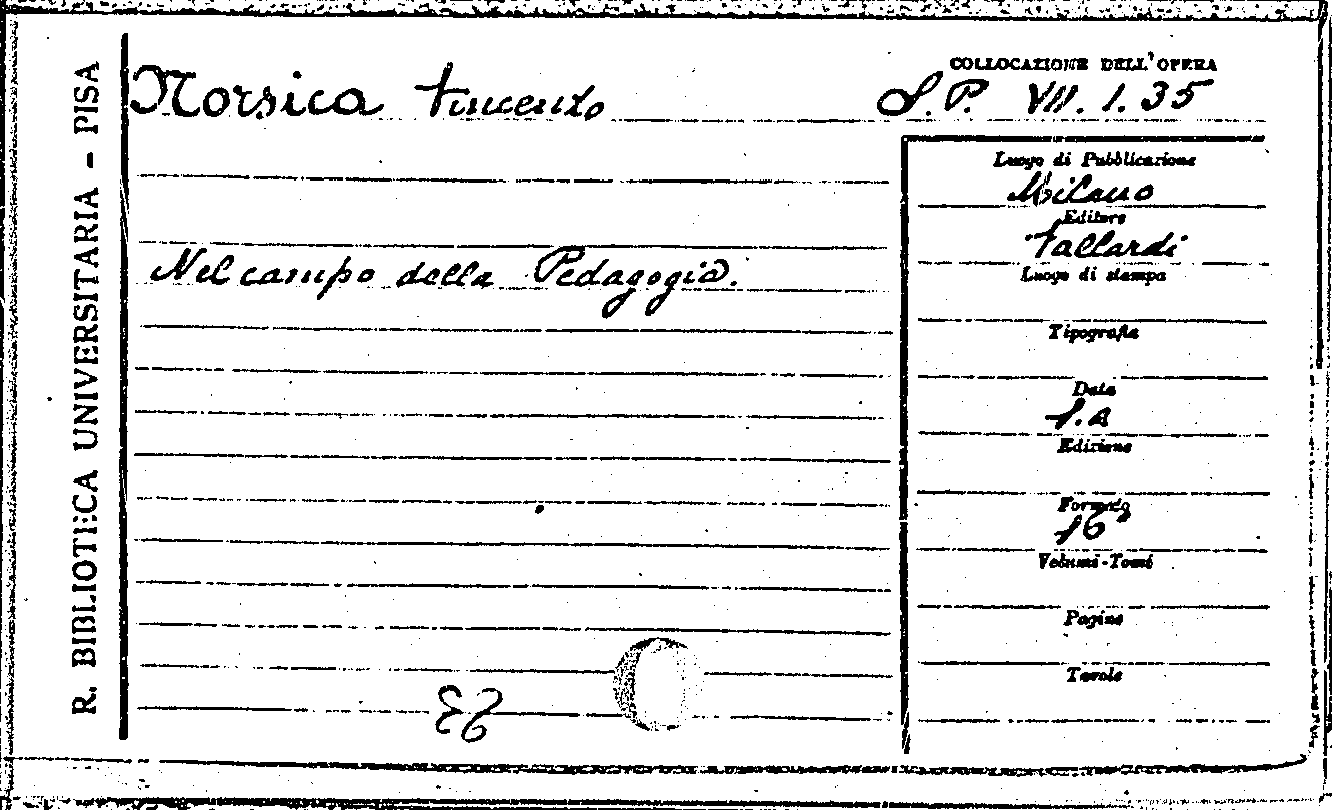 R. BIBLIOTECA UNIVERSITARIA - PISA
COLLOCAZIONE DELL'OPERA
Norsica Vincenzo
S.P. VII. 1. 35
Luogo di Pubblicazione
Milano
Editore
Vallardi
Nel campo della Pedagogia.
Luogo di stampa
Tipografia
Data
s.a
Edizione
Formato
16°
Volumi-Tomi
Pagine
Tavole